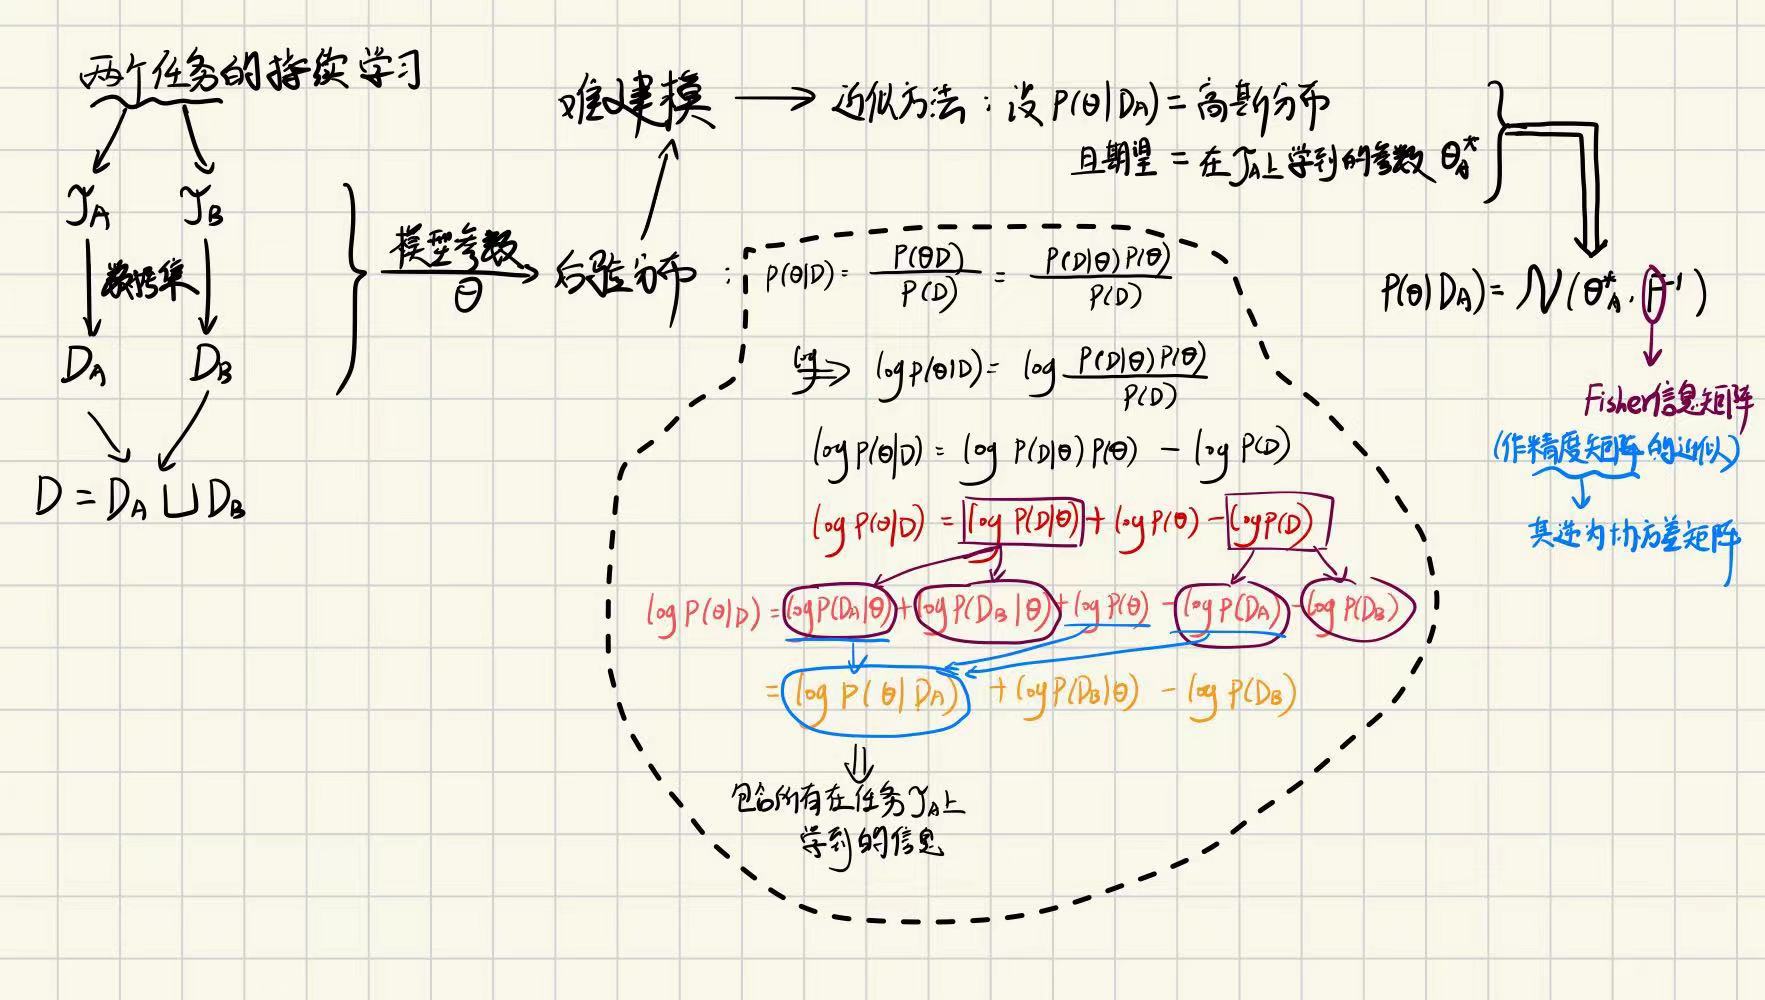 两个任务的持续学习
𝒯A 𝒯B
数据集
DA DB
D = DA ⊔ DB
模型参数
θ
后验分布：
难建模 → 近似方法：设 P(θ|DA) = 高斯分布
且期望 = 在𝒯A上学到的参数 θ*A
P(θ|DA) = N(θ*A, F⁻¹)
Fisher信息矩阵
(作精度矩阵的近似)
其逆为协方差矩阵
P(θ|D) = P(θD)/P(D) = P(D|θ)P(θ)/P(D)
log ⇒ log P(θ|D) = log P(D|θ)P(θ)/P(D)
log P(θ|D) = log P(D|θ)P(θ) − log P(D)
log P(θ|D) = log P(D|θ) + log P(θ) − log P(D)
log P(θ|D) = log P(DA|θ) + log P(DB|θ) + log P(θ) − log P(DA) − log P(DB)
= log P(θ|DA) + log P(DB|θ) − log P(DB)
包含所有在任务𝒯A上
学到的信息